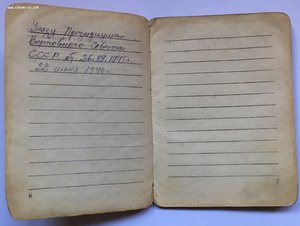 Указу Президиума
Верховного Совета
СССР от 26.09.1945г.
22 июня 1948г.
6